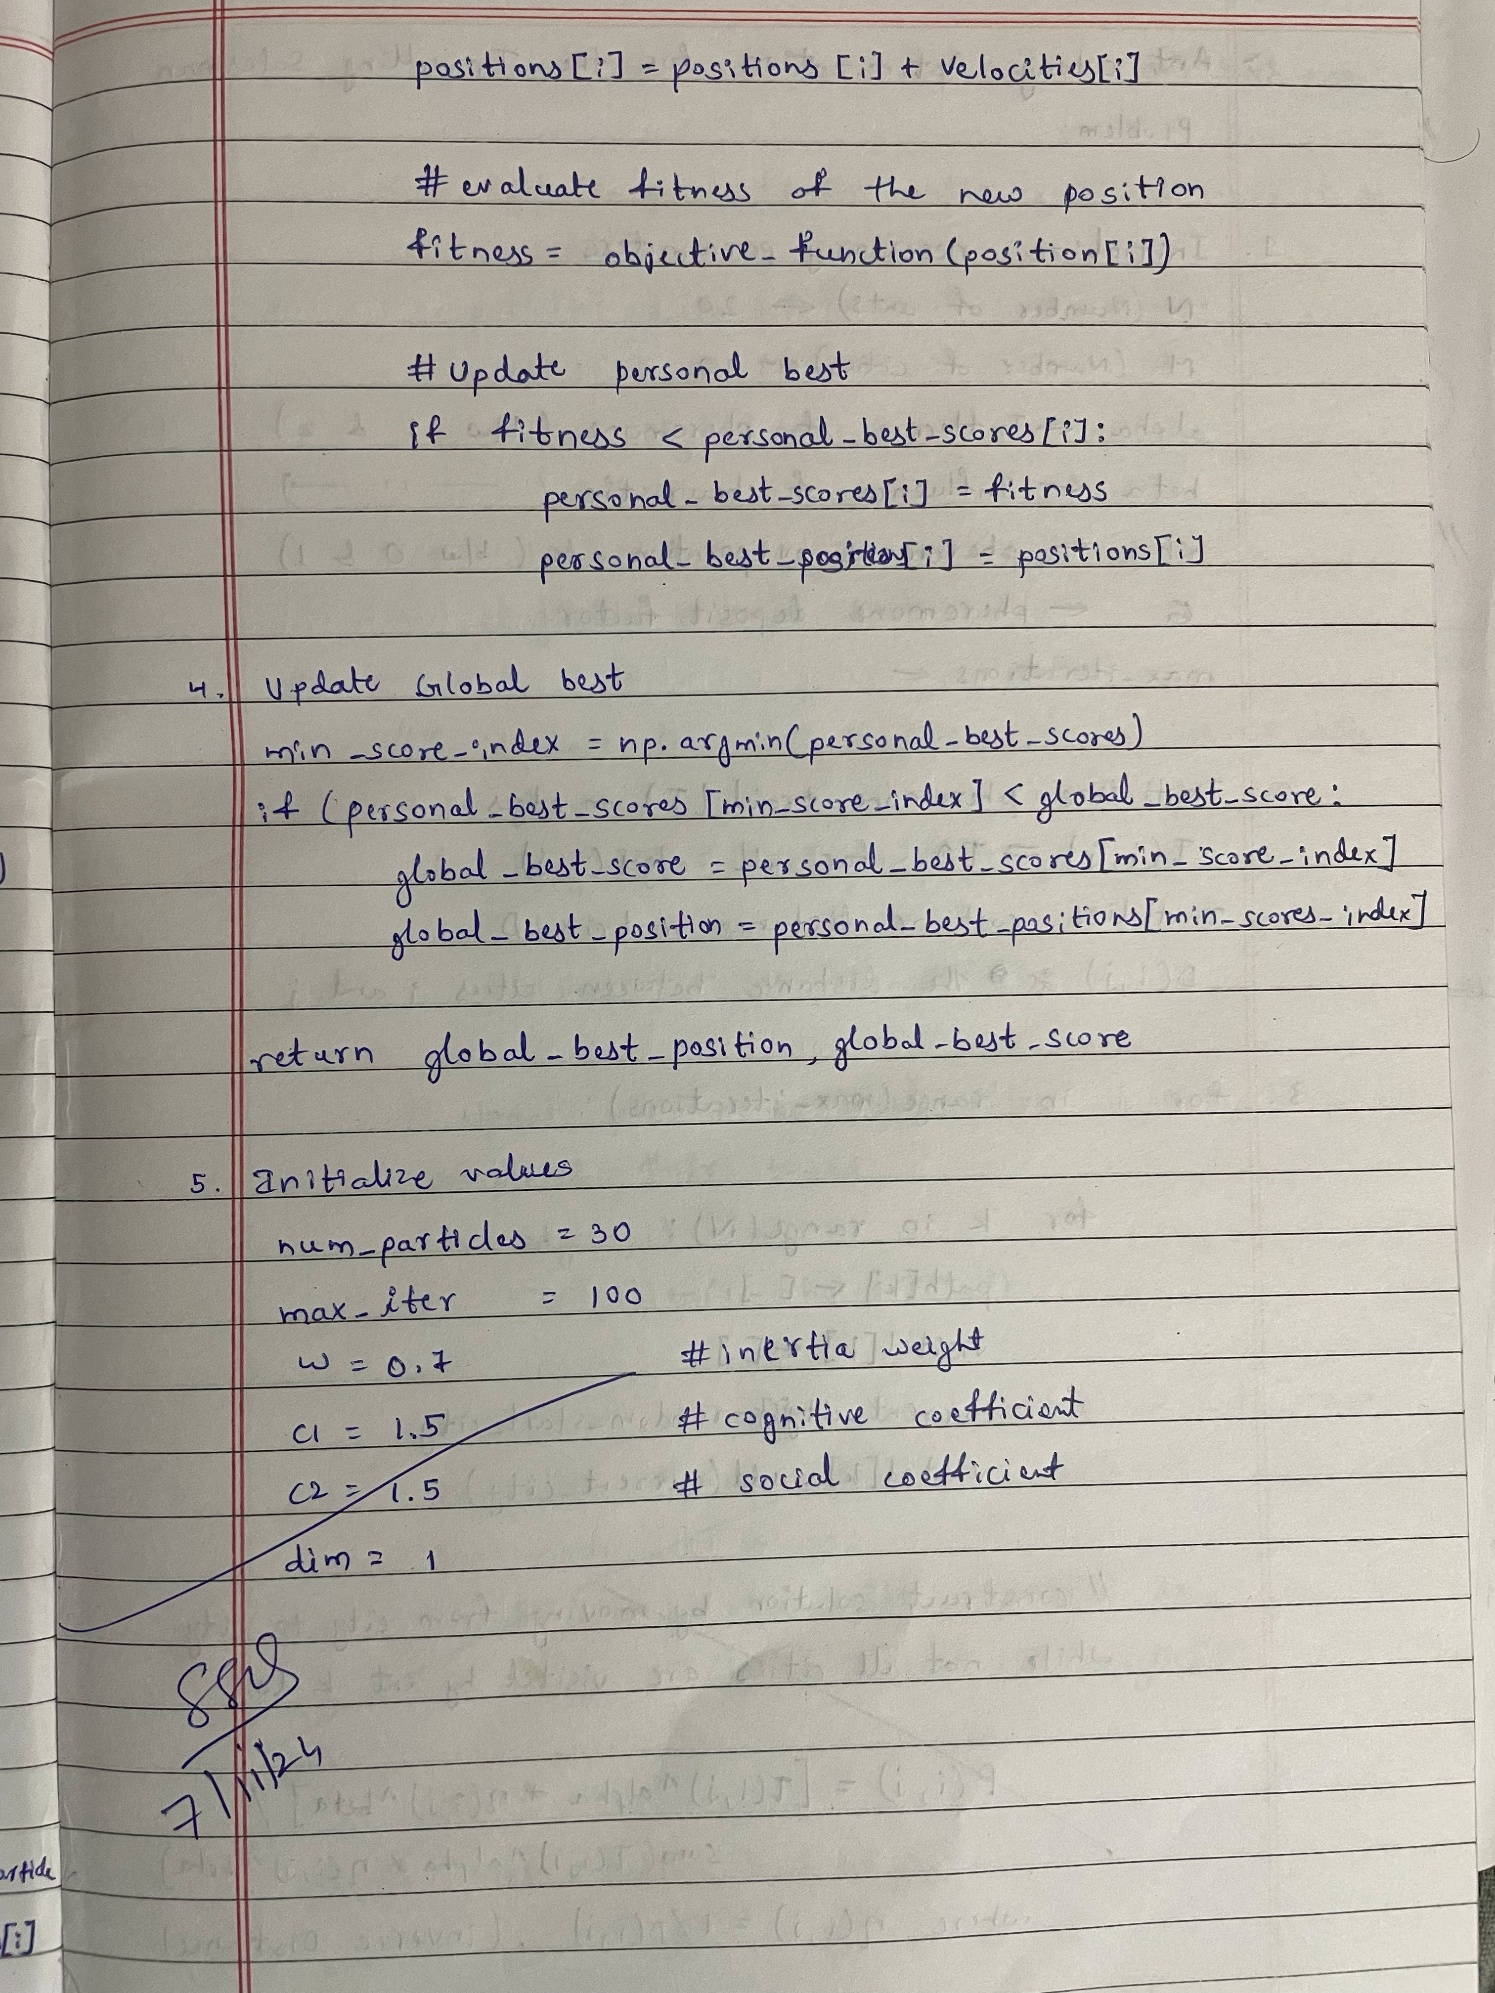 positions[i] = positions[i] + velocities[i]
# evaluate fitness of the new position
fitness = objective_function(position[i])
# Update personal best
if fitness < personal_best_scores[i]:
personal_best_scores[i] = fitness
personal_best_position[i] = positions[i]
4. Update Global best
min_score_index = np.argmin(personal_best_scores)
if (personal_best_scores[min_score_index] < global_best_score:
global_best_score = personal_best_scores[min_score_index]
global_best_position = personal_best_positions[min_scores_index]
return global_best_position, global_best_score
5. Initialize values
num_particles = 30
max_iter = 100
w = 0.7 # inertia weight
c1 = 1.5 # cognitive coefficient
c2 = 1.5 # social coefficient
dim = 1
7/11/24
[i]